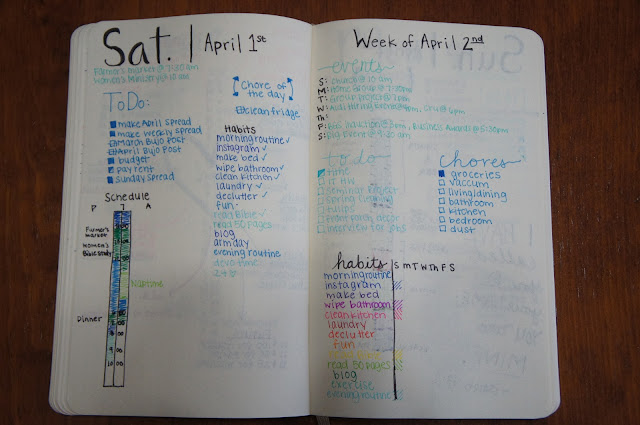 Sat. | April 1st
Farmer's market @ 7:30am
Women's Ministry @ 10 am
Chore of
the day
clean fridge
ToDo:
make April spread
make weekly spread
March Bujo Post
April Bujo Post
budget
pay rent
sunday spread
Habits
morning routine
instagram
make bed
wipe bathroom
clean kitchen
laundry
declutter
fun
read Bible
read 50 pages
blog
arm day
evening routine
Schedule
P 7 A
Farmer's
market
Women's
Bible study
Naptime
Dinner
Week of April 2nd
events
S: church @ 10 am
M: Home Group @ 7:30pm
T: Group Project @ 7pm
W:
Th:
F:
S:
to do
time
seminar project
spring cleaning
chores
groceries
vaccum
living/dining
bathroom
kitchen
bedroom
dust
habits | S M T W Th F S
morning routine
instagram
make bed
wipe bathroom
clean kitchen
laundry
declutter
fun
read 50 pages
blog
exercise
evening routine